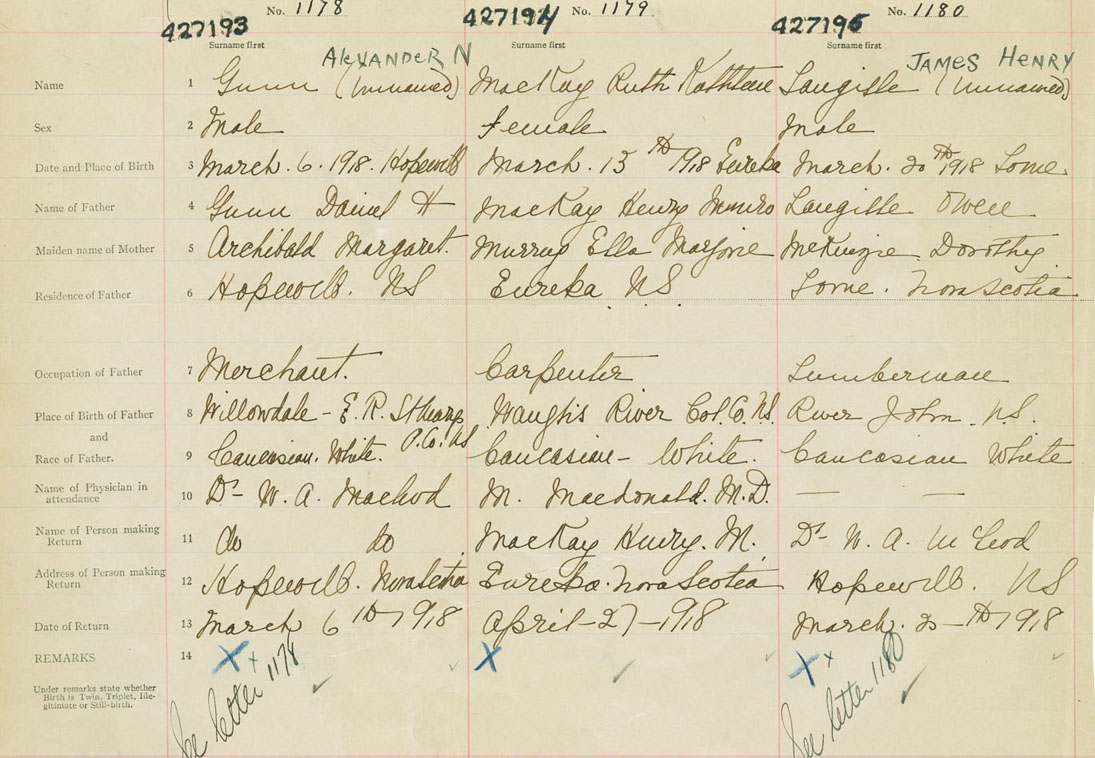 No. 1178 No. 1179 No. 1180
427193 427194 427195
Surname first Surname first Surname first
Alexander N James Henry
Name 1 Gunn (Unnamed) MacKay Ruth Kathleen Langille (Unnamed)
Sex 2 Male Female Male
Date and Place of Birth 3 March. 6. 1918. Hopewell March. 13th 1918 Eureka March. 20th 1918 Lorne
Name of Father 4 Gunn Daniel H MacKay Henry Munro Langille Owen
Maiden name of Mother 5 Archibald Margaret. Murray Ella Marjorie McKenzie Dorothy
Residence of Father 6 Hopewell. NS Eureka NS Lorne. Nova Scotia
Occupation of Father 7 Merchant. Carpenter Lumberman
Place of Birth of Father 8 Willowdale - E. R. St Marys Waughs River Col. Co. NS. River John. NS.
and P. Co. NS
Race of Father. 9 Caucasian. White. Caucasian - White. Caucasian White
Name of Physician in
attendance 10 Dr W. A. Macleod M. Macdonald. M.D. — —
Name of Person making
Return 11 do do MacKay Henry. M. Dr W. A. McLeod
Address of Person making
Return 12 Hopewell. Nova Scotia Eureka. Nova Scotia Hopewell. NS
Date of Return 13 March 6th 1918 April - 27 - 1918 March. 25 - th 1918
REMARKS 14 X + X X +
Under remarks state whether
Birth is Twin, Triplet, Ille-
gitimate or Still-birth.
See letter 1178 See letter 1180